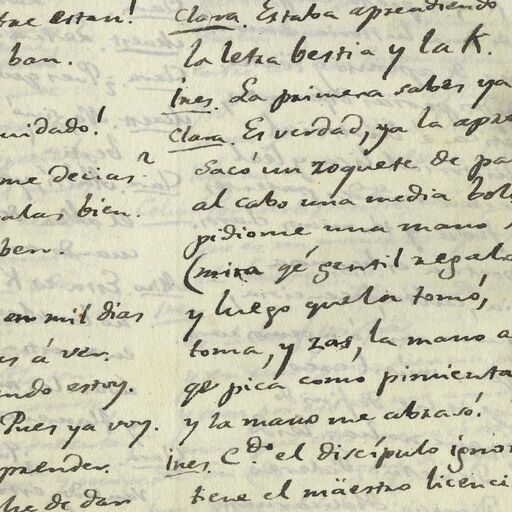 estan!
ban.
uidado!
me decias?
alas bien.
ben.
en mil dias
as á ver.
ndo estoy.
Pues ya voy.
prender.
he de dar
Clara. Estaba aprendiendo
la letra bestia y la K.
Ines. La primera sabes ya
Clara. Es verdad, ya la apre
Sacó un zoquete de pa
al cabo una media bol
pidiome una mano
(mira qé gentil regalo
y luego que la tomó,
toma, y zas, la mano a
qe pica como pimienta
y la mano me abrasó!
Ines. Cdo el discípulo ignor
tiene el mäestro licenci